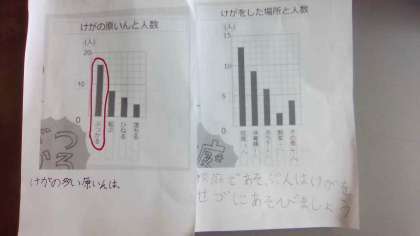 けがの原いんと人数
(人)
20
10
0
ぶつかる
転ぶ
ひねる
落ちる
けがの多い原いんは、
けがをした場所と人数
(人)
15
10
5
0
校庭
体育館
教室
その他
校庭であそぶ人はけがを
せずにあそびましょう